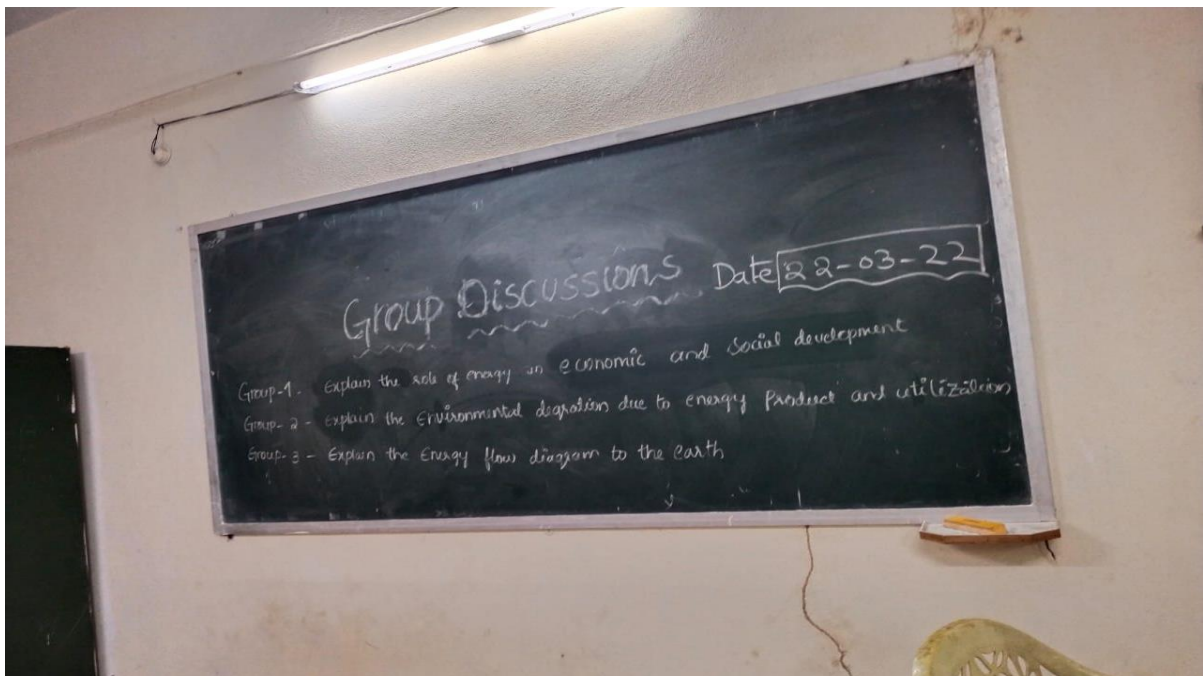 Group Discussions Date 22-03-22
Group-1. Explain the role of energy in economic and social development
Group-2 - Explain the Environmental degration due to energy Product and utilization
Group-3 - Explain the Energy flow diagram to the earth